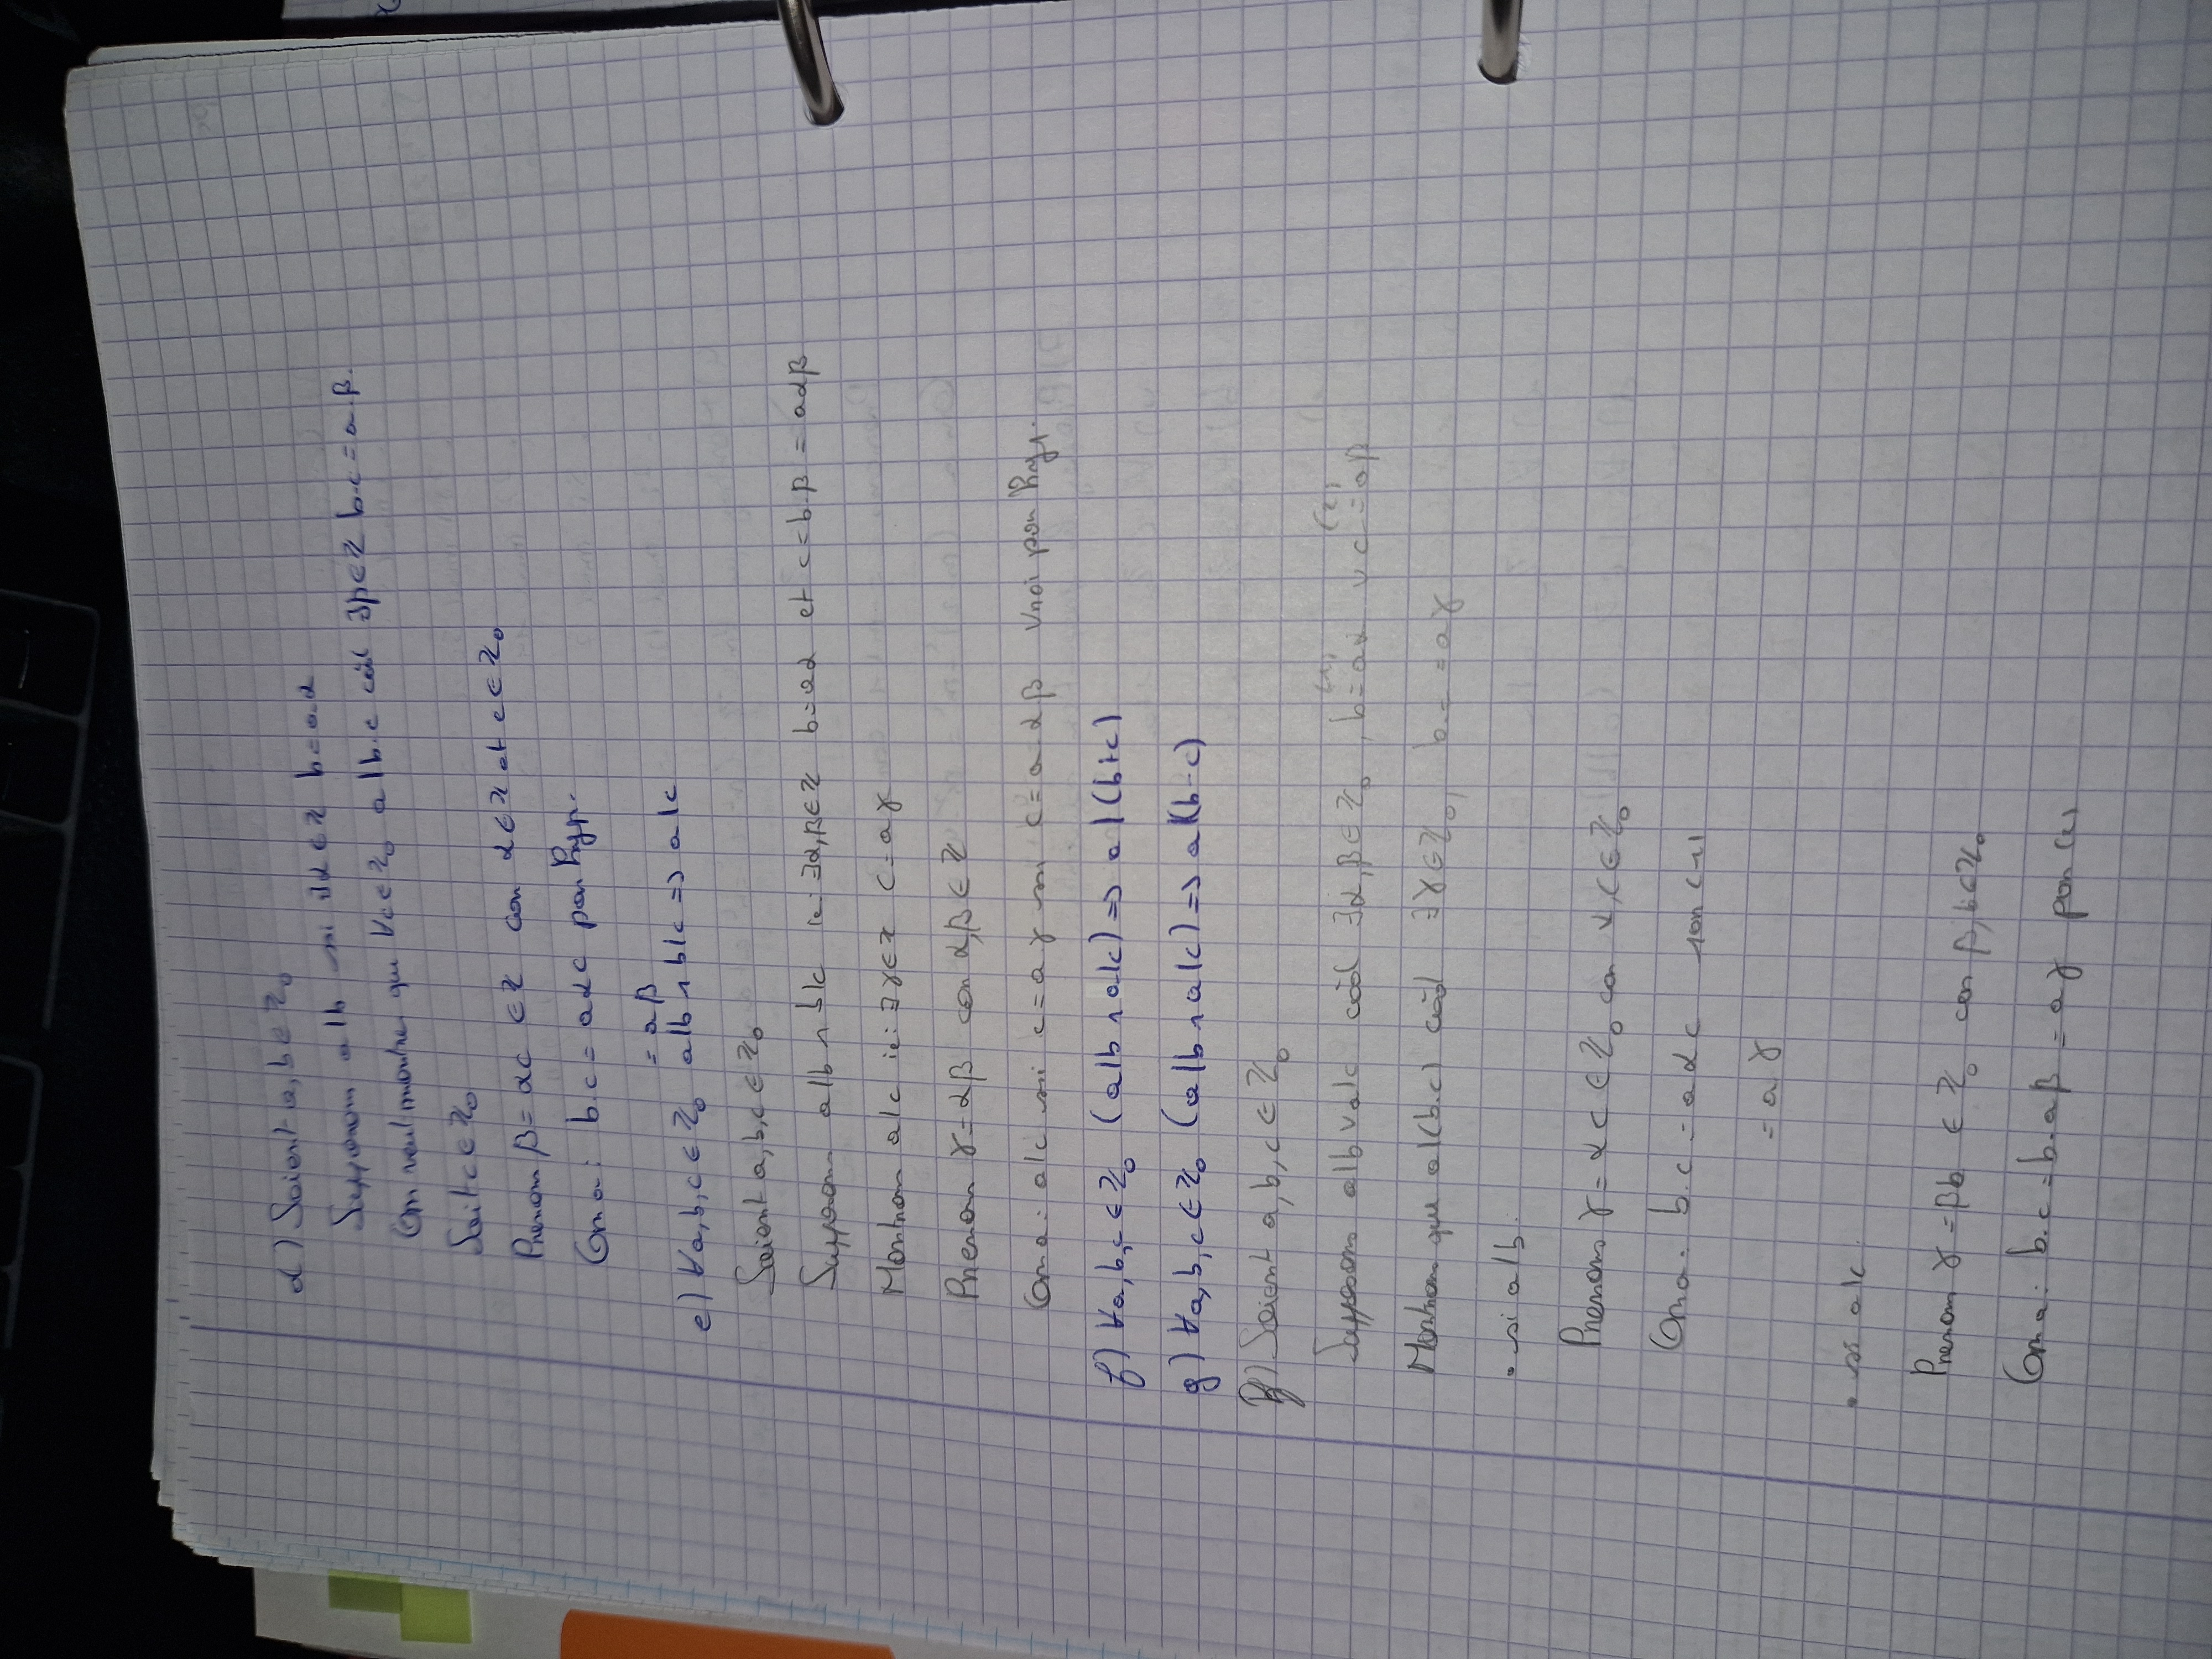 d) Soient a, b ∈ ℤ₀
Supposons a|b ssi ∃α ∈ ℤ b = a.α
On veut montrer que ∀c ∈ ℤ₀ a|b.c càd ∃β ∈ ℤ b.c = a.β.
Soit c ∈ ℤ₀
Prenons β = αc ∈ ℤ car α ∈ ℤ et c ∈ ℤ₀
On a : b.c = aαc par hyp.
= aβ
e) ∀a, b, c ∈ ℤ₀ a|b ∧ b|c => a|c
Soient a, b, c ∈ ℤ₀
Supposons a|b ∧ b|c ie: ∃α, β ∈ ℤ b = aα et c = b.β = aαβ
Montrons a|c ie: ∃γ ∈ ℤ c = aγ
Prenons γ = αβ car α, β ∈ ℤ
On a : a|c ssi c = aγ ssi c = a.αβ Vrai par hyp.
f) ∀a, b, c ∈ ℤ₀ (a|b ∧ a|c) => a|(b+c)
g) ∀a, b, c ∈ ℤ₀ (a|b ∧ a|c) => a|(b-c)
) Soient a, b, c ∈ ℤ₀
Supposons a|b ∨ a|c càd ∃α, β ∈ ℤ₀, b = aα (1) ∨ c = aβ (2)
Montrons que a|(b.c) càd ∃γ ∈ ℤ₀, b.c = aγ
• si a|b :
Prenons γ = αc ∈ ℤ₀ car α, c ∈ ℤ₀
On a : b.c = aαc par (1)
= aγ
• si a|c :
Prenons γ = βb ∈ ℤ₀ car β, b ∈ ℤ₀
On a : b.c = b.aβ = aγ par (2)